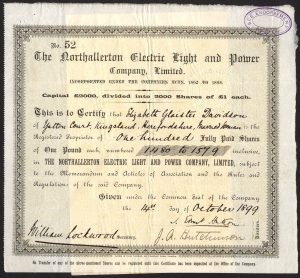 No. 52
The Northallerton Electric Light and Power
Company, Limited.
INCORPORATED UNDER THE COMPANIES ACTS, 1862 TO 1898.
Capital £2000, divided into 2000 Shares of £1 each.
This is to Certify that Elizabeth Glaister Davidson
of Yatton Court, Kingsland, Herefordshire,
is the Registered Proprietor of One Hundred Fully Paid Shares
of One Pound each numbered 1480 to 1579 inclusive,
in THE NORTHALLERTON ELECTRIC LIGHT AND POWER COMPANY, LIMITED, subject
to the Memorandum and Articles of Association and the Rules and
Regulations of the said Company.
Given under the Common Seal of the Company
the 4th day of October 1899
William Lockwood Secretary.
J. A. Hutchinson
No Transfer of any of the above-mentioned Shares can be registered until this Certificate has been deposited at the Office of the Company.